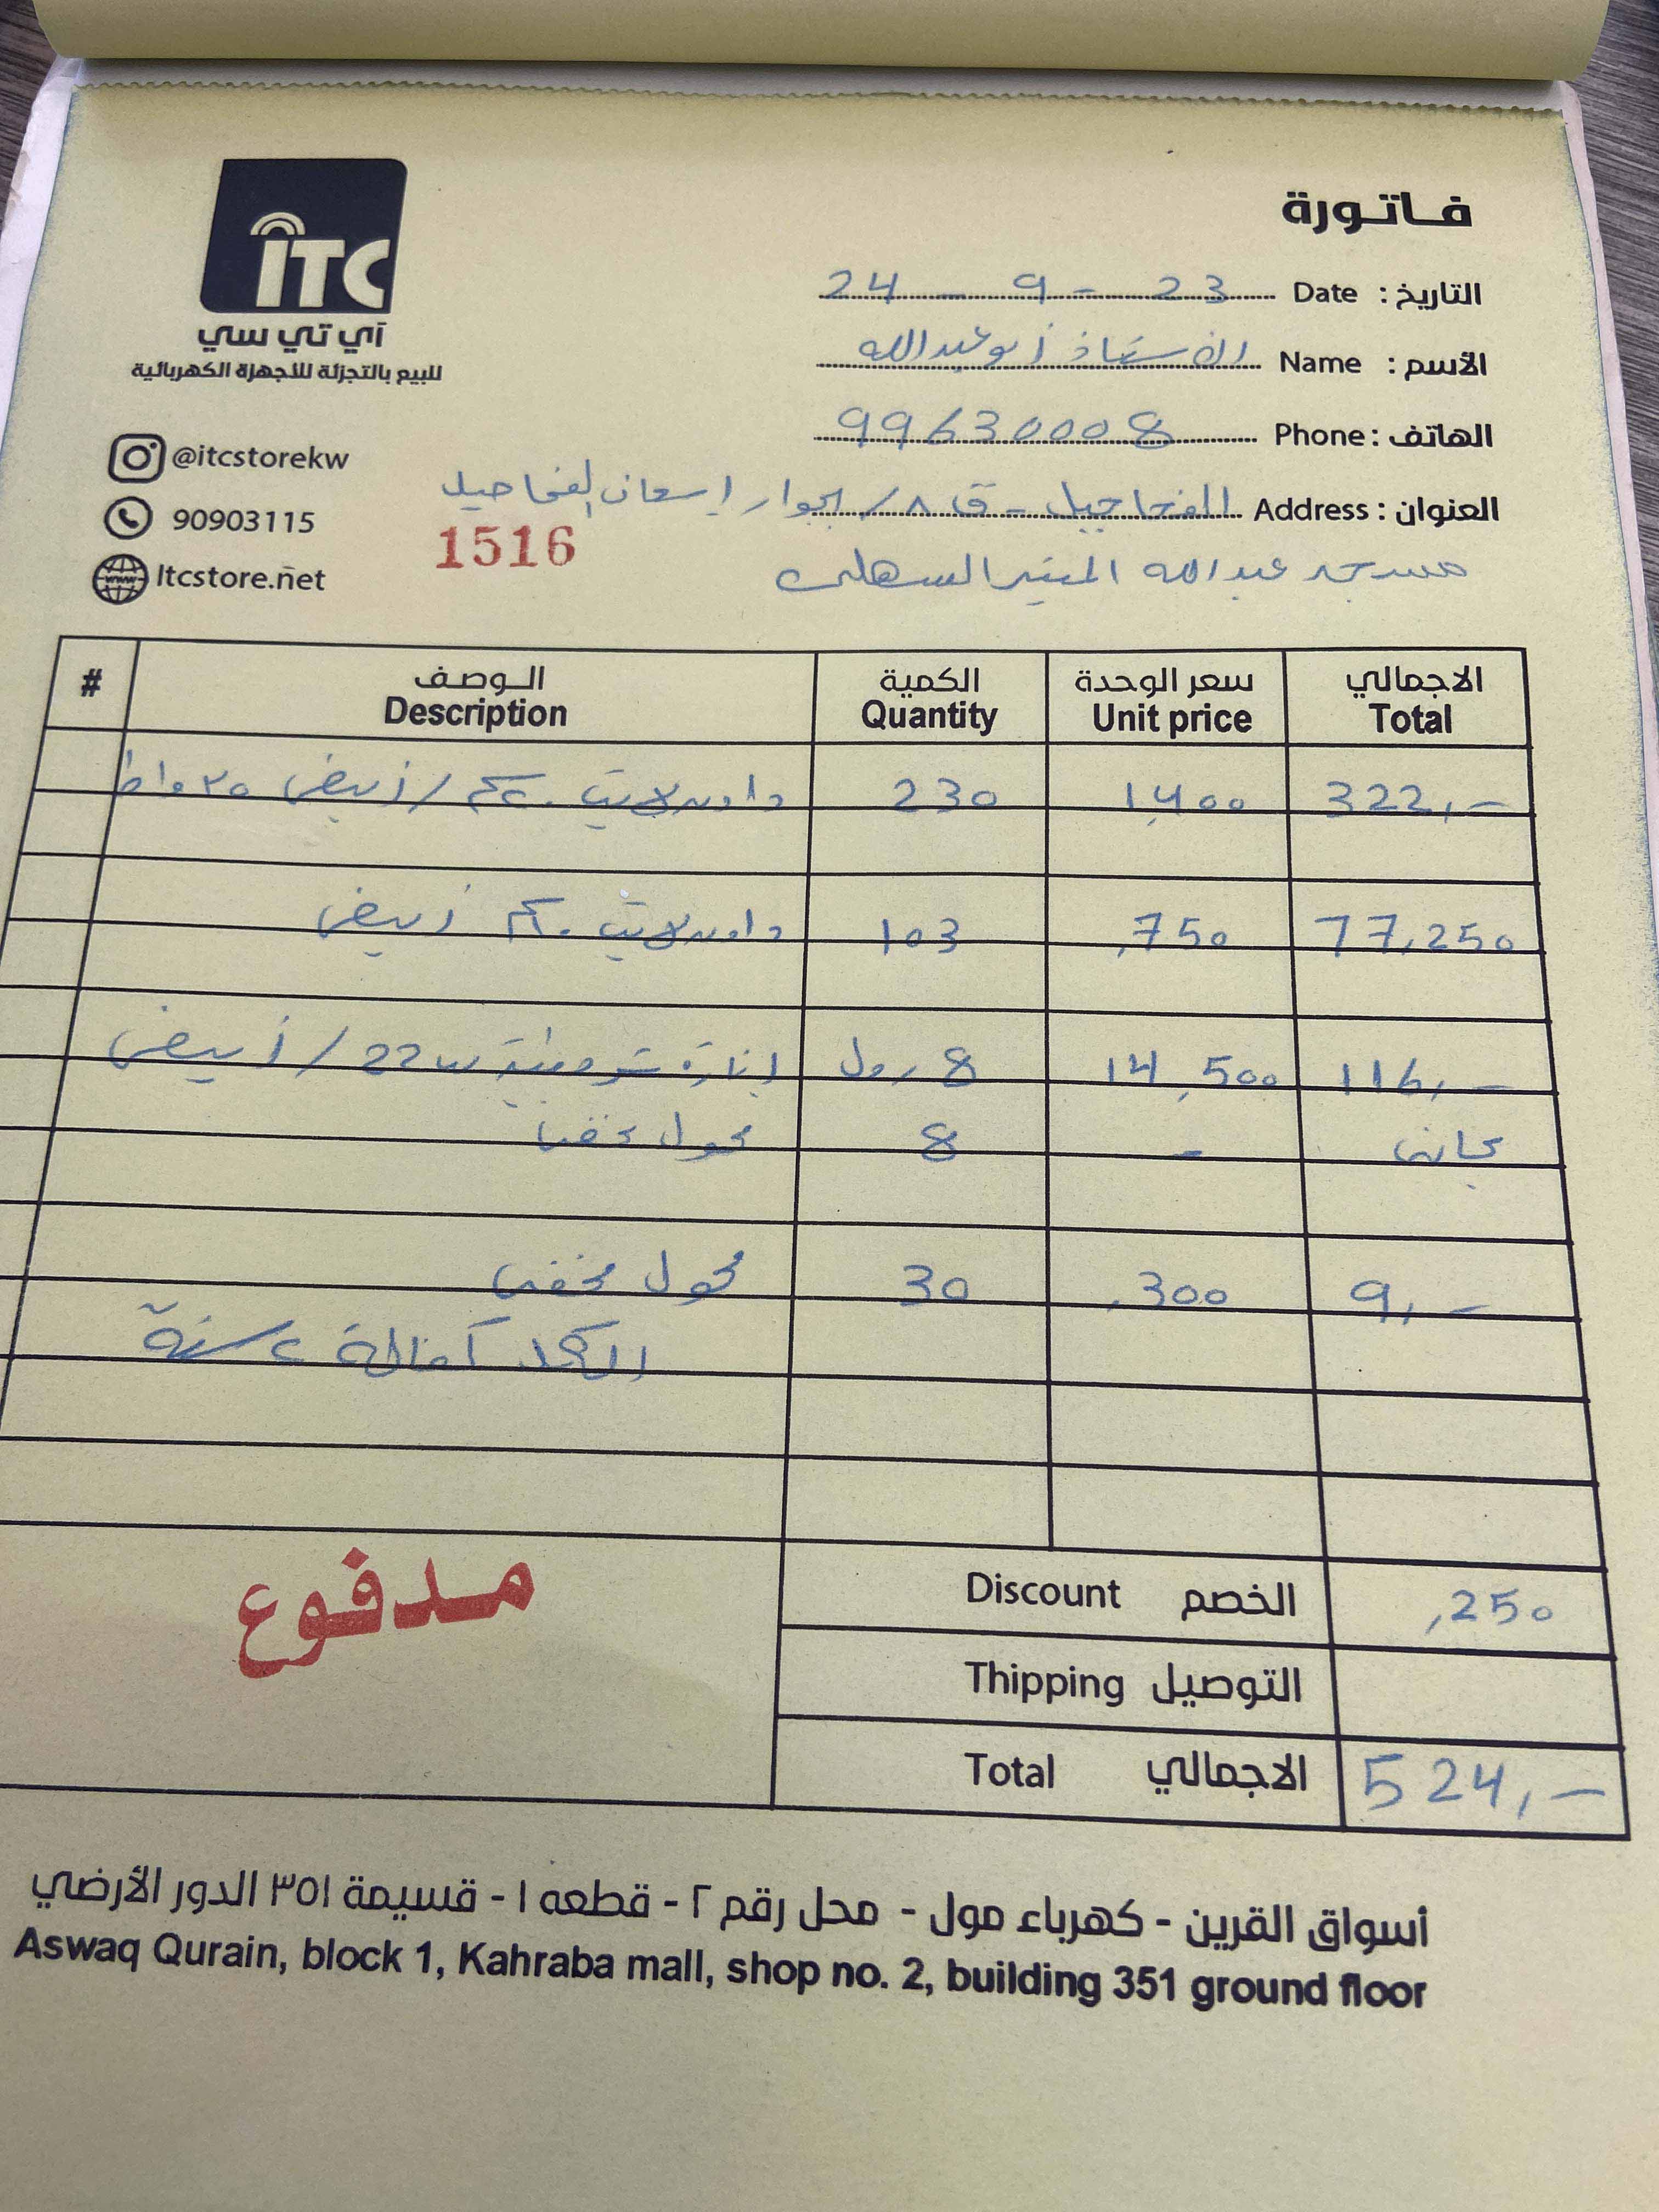 ITC
آي تي سي
للبيع بالتجزئة للأجهزة الكهربائية
@itcstorekw
90903115
Itcstore.net
1516
فاتورة
التاريخ : Date 24 - 9 - 23
الأسم : Name الاستاذ أبو عبدالله
الهاتف : Phone 99630008
العنوان : Address الفحاحيل - ق ٨ / بجوار إسعاف الفحاحيل
مسجد عبدالله المنير السهلي
# الوصف Description الكمية Quantity سعر الوحدة Unit price الاجمالي Total
داون لايت ٢٠سم / أبيض ٢٥ واط 230 1,400 322,-
داون لايت ١٠سم أبيض 103 ,750 77,250
إنارة شريطية 22 / أبيض 8 رول 14,500 116,-
محول مخفي 8 - مجاني
محول مخفي 30 ,300 9,-
الكل كفالة ٢ سنة
مدفوع
Discount الخصم ,250
Thipping التوصيل
Total الاجمالي 524,-
أسواق القرين - كهرباء مول - محل رقم ٢ - قطعه ١ - قسيمة ٣٥١ الدور الأرضي
Aswaq Qurain, block 1, Kahraba mall, shop no. 2, building 351 ground floor